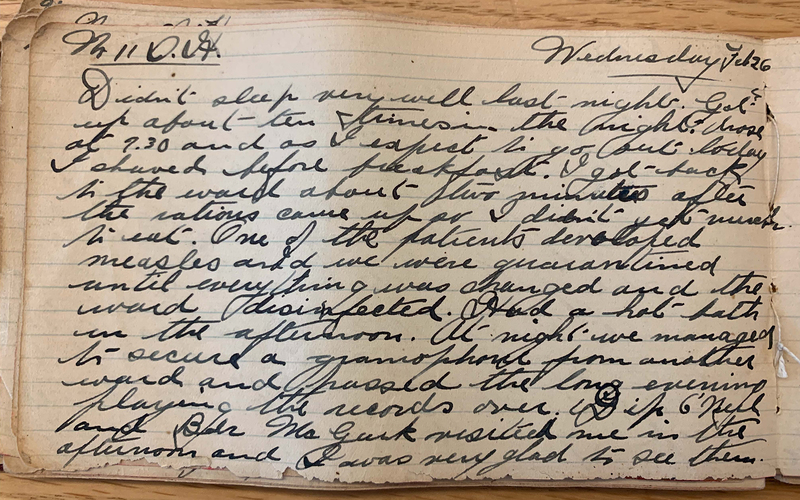 No 11 O.H. Wednesday Feb 26
Didn't sleep very well last night. Got
up about ten times in the night. Arose
at 7.30 and as I expect to go out today
I shaved before breakfast. I got back
to the ward about two minutes after
the rations came up so I didn't get much
to eat. One of the patients developed
measles and we were quarantined
until everything was changed and the
ward disinfected. Had a hot bath
in the afternoon. At night we managed
to secure a gramophone from another
ward and passed the long evening
playing the records over. Dip O'Neil
and Bdr McGurk visited me in the
afternoon and I was very glad to see them.